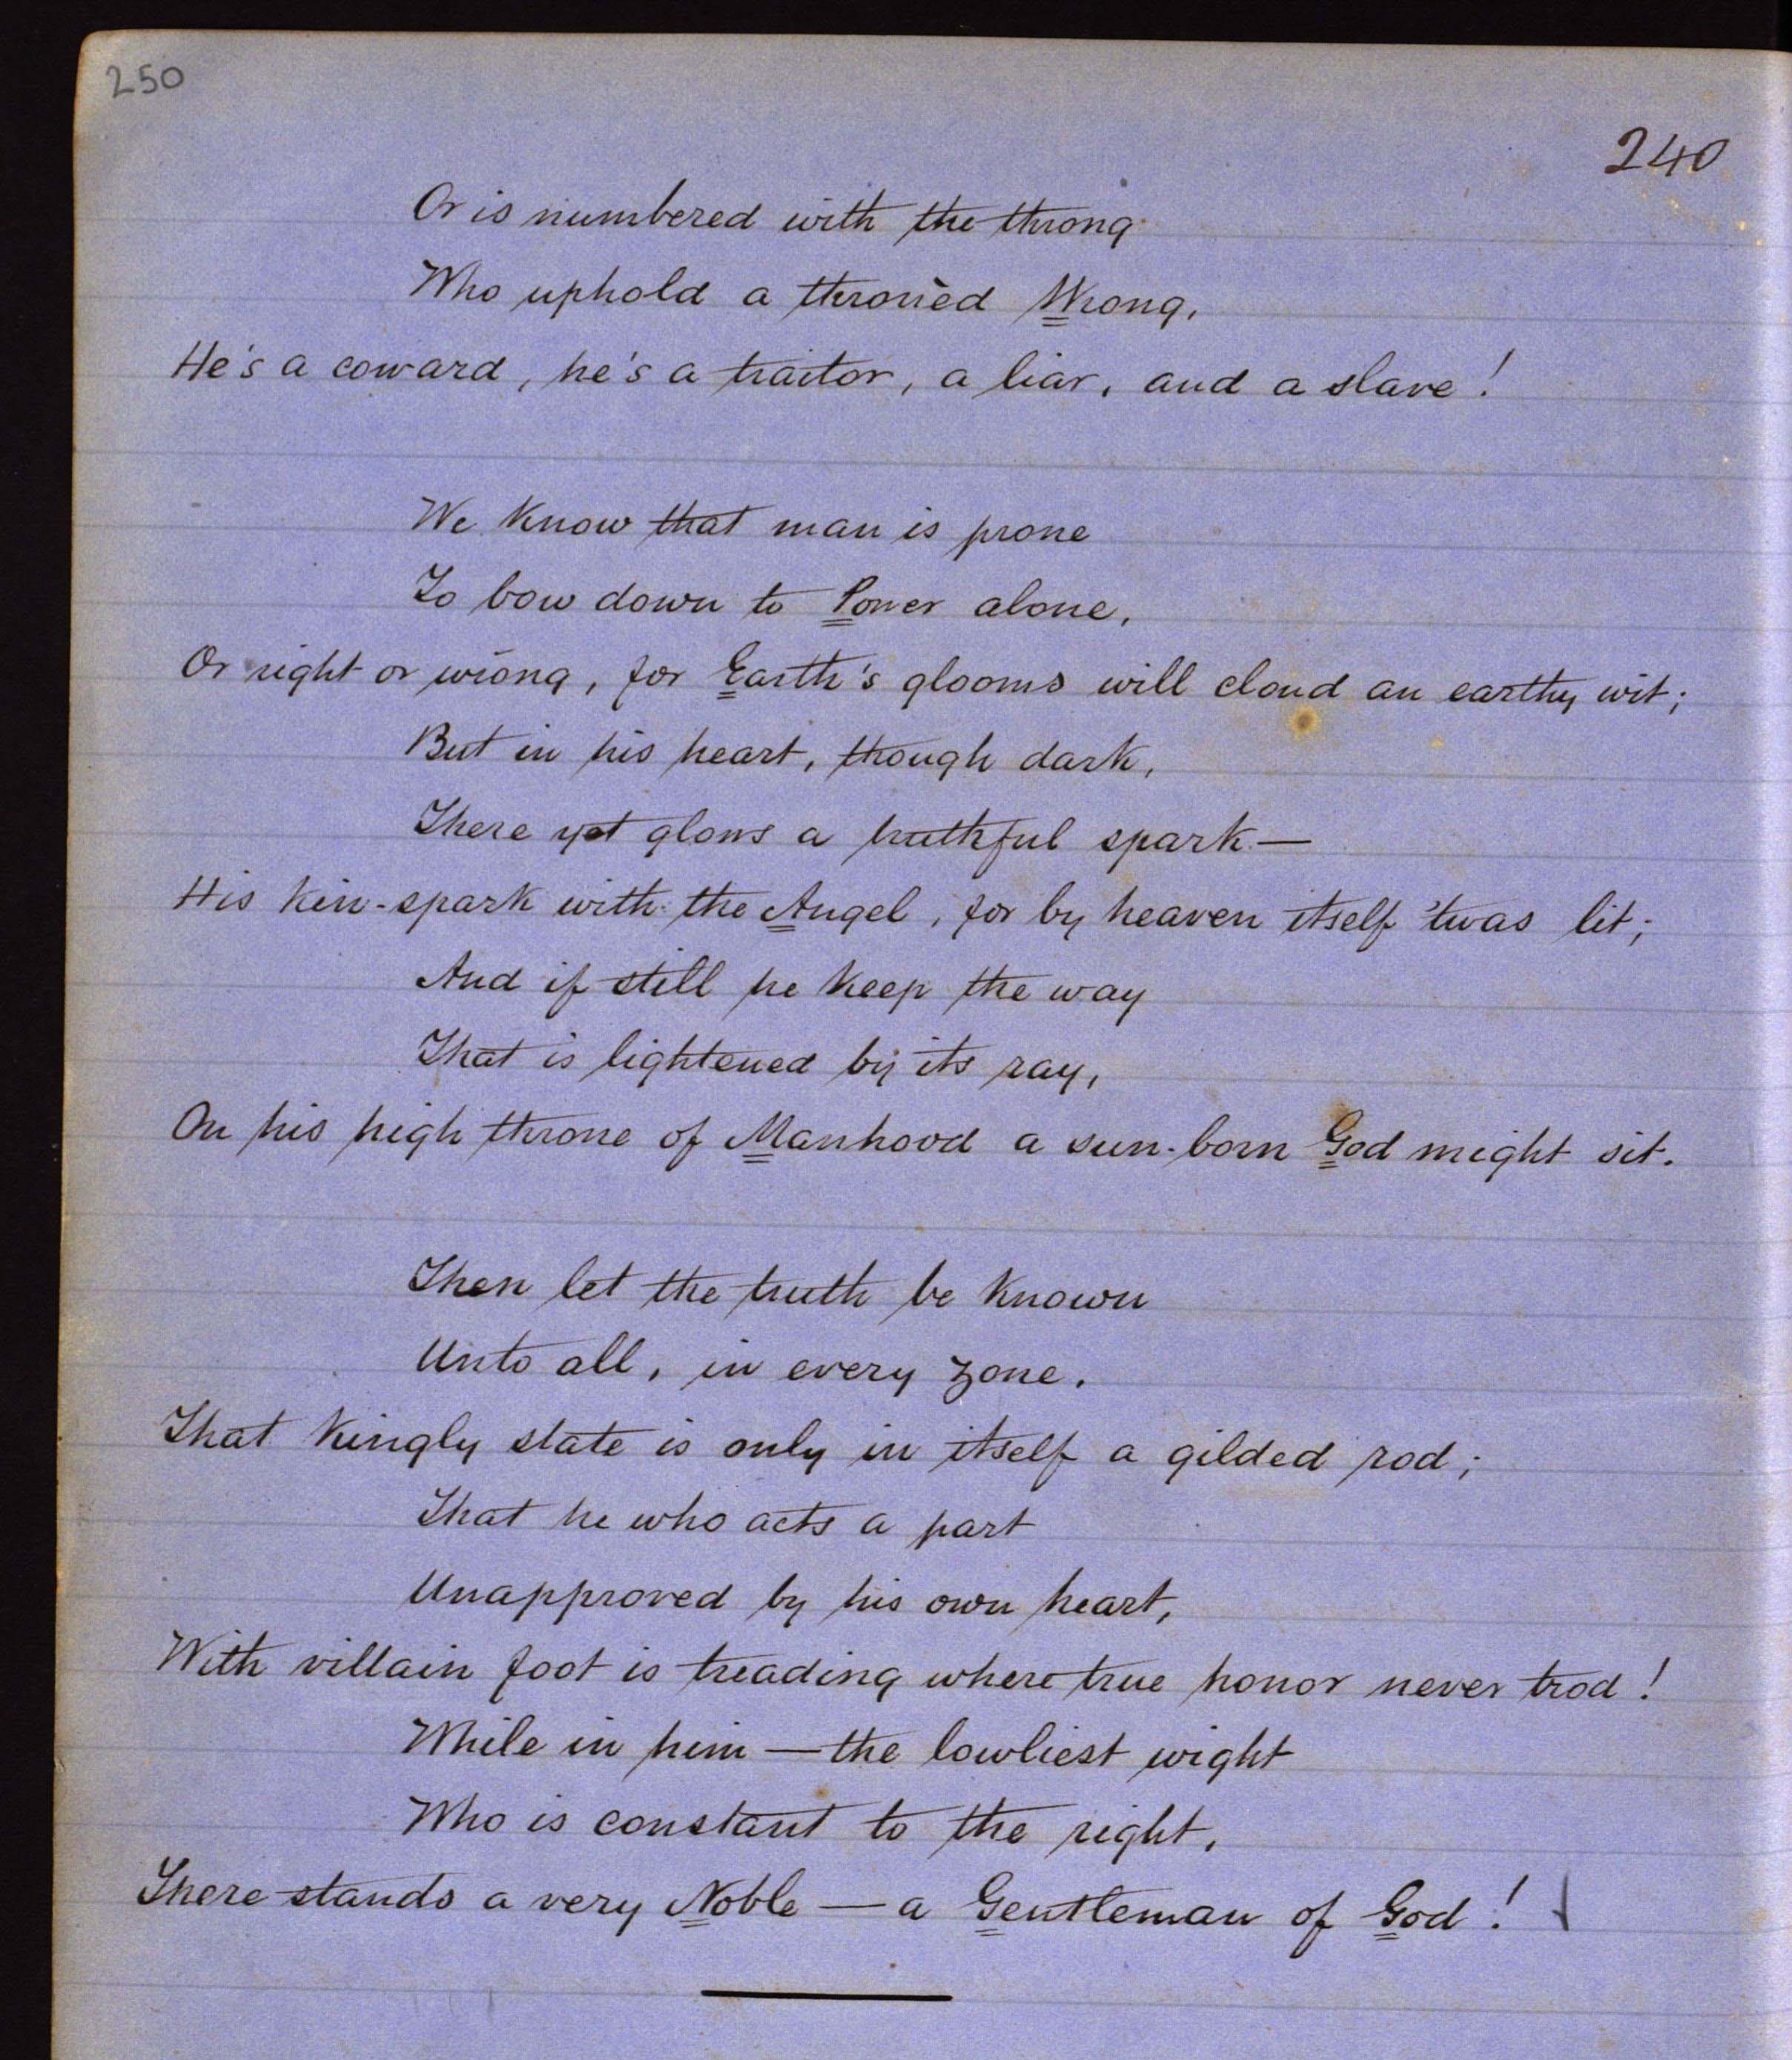 250
240
Or is numbered with the throng
Who uphold a thronèd Wrong,
He's a coward, he's a traitor, a liar, and a slave!
We know that man is prone
To bow down to Power alone,
Or right or wrong, for Earth's glooms will cloud an earthy wit;
But in his heart, though dark,
There yet glows a truthful spark—
His kin-spark with the Angel, for by heaven itself 'twas lit;
And if still he keep the way
That is lightened by its ray,
On his high throne of Manhood a sun-born God might sit.
Then let the truth be known
Unto all, in every zone,
That kingly state is only in itself a gilded rod;
That he who acts a part
Unapproved by his own heart,
With villain foot is treading where true honor never trod!
While in him — the lowliest wight
Who is constant to the right,
There stands a very Noble — a Gentleman of God!